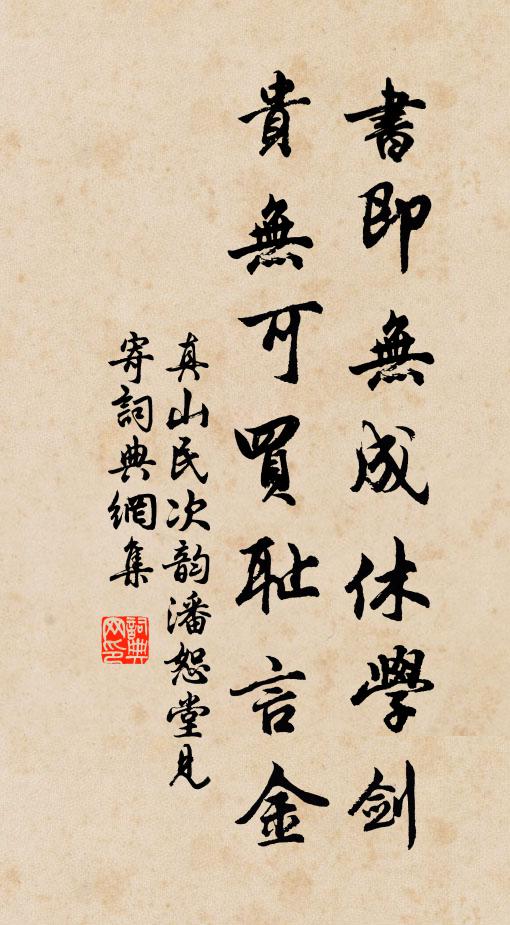 書即無成休學劍
貴無可買耻言金
真山民次韵潘恕堂見
寄詞典網集
詞典
网印